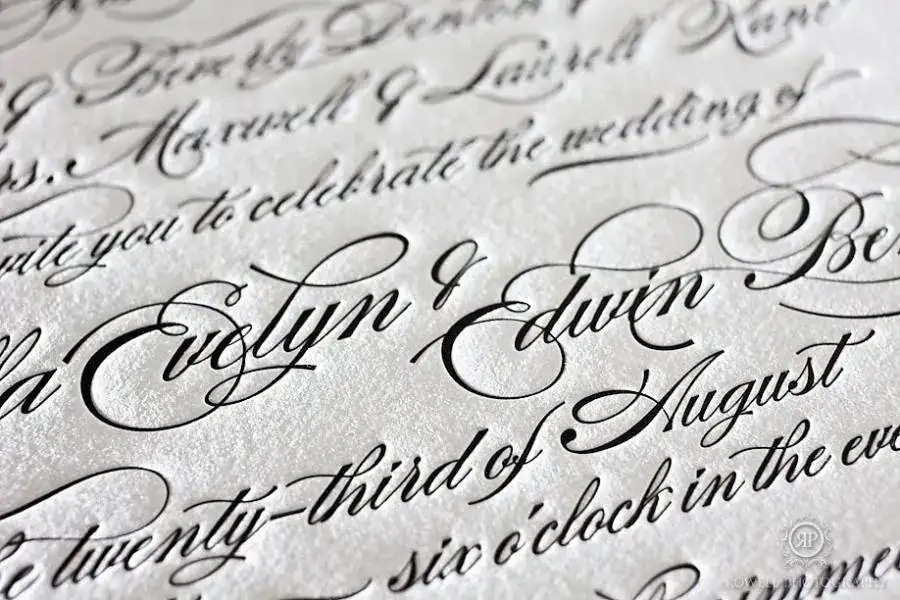 & Beverly Denton &
Maxwell & Laurell Kane
vite you to celebrate the wedding of
la Evelyn & Edwin Be
e twenty-third of August
six o'clock in the eve
RP
ROWELL PHOTOGRAPHY